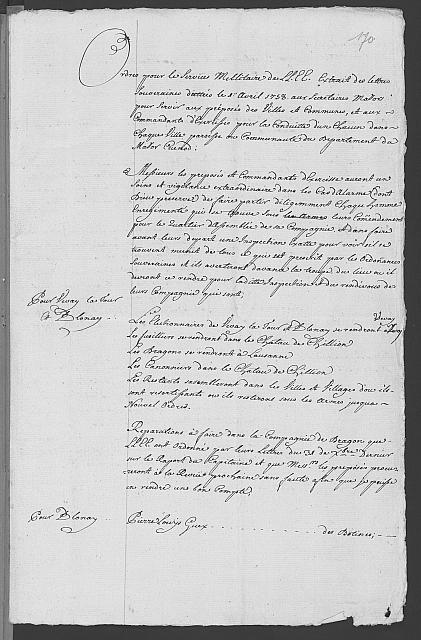 170
Ordres pour le Services Millitaire de LL.EE. Extrait des lettres
Souveraines dattées le 1r Avril 1758 aux Secretaires Mator
pour Servir aux préposés des Villes et Communes, et aux
Commandants d'Exercisse pour la Conduitte d'un Chacun dans
Chaque Ville paroisse ou Communauté du Departement du
Major Curtod.
Messieurs les préposés et Commandants d'Exercisse auront un
Soins et vigilance extraordinaire dans les Cas d'Alarme dont
Dieu preserve de faire partir diligemment Chaque homme
Enregimenté qui se trouve sous leurs Commendement
pour le Quartier d'Assemblée de sa Compagnie, et dans faire
avant leurs depart une Inspection Exatte pour voir s'il se
trouvent munit de tous ce qui est prescrit par les Ordonances
Souveraines et ils avertiront davance la troupe du lieu ou il
devront ce rendre pour laditte Inspection et du rendevous de
leurs Compagnie qui sont;
Pour Vevay la tour
& Blonay
Les Elutionnaires de Vevay la Tour & Blonay se rendront à Vevay
Les fusilliers se rendront dans le Chateau de Chillion
Les Dragons se rendront à Lausanne
Les Canonniers dans le Chateau de Chillion
Les Restants sassembleront dans les Villes & Villages dou ils
sont ressortisants ou ils resterons sous les Armes jusquas
Nouvel Ordres.
Reparations à faire dans la Compagnie de Dragon que
LL.EE. ont ordonné par leurs Lettres du 31 de Xbre Dernier
sur le Raport du Capitaine et que Messrs les préposés procu-
reront à la Revüe prochaine sans faute afin que je puisse
en rendre un bon Compte
Pour Blonay
Pierre Louys Guex . . . . . . . . . . . . . . des Botines; —